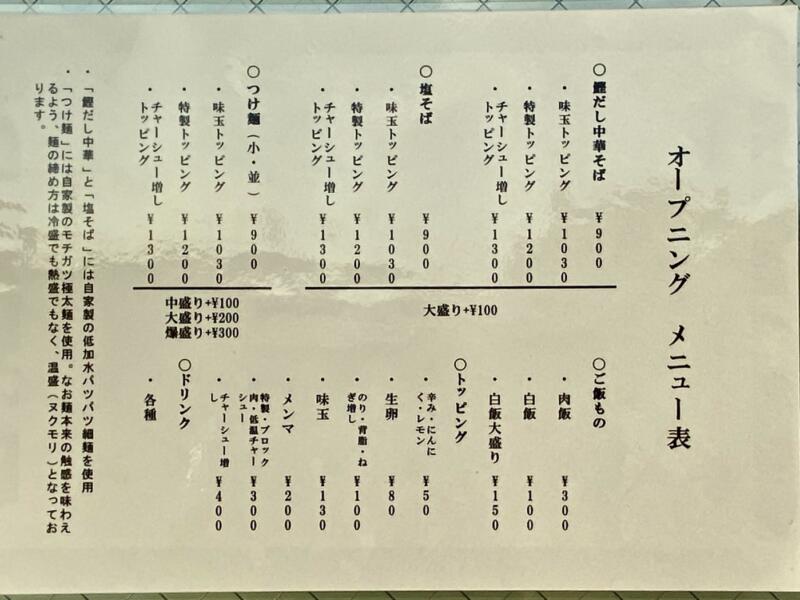 オープニング メニュー表
〇鰹だし中華そば ¥900
・味玉トッピング ¥1030
・特製トッピング ¥1200
・チャーシュー増し
トッピング ¥1300
〇塩そば ¥900
・味玉トッピング ¥1030
・特製トッピング ¥1200
・チャーシュー増し
トッピング ¥1300
大盛り+¥100
〇つけ麺(小・並) ¥900
・味玉トッピング ¥1030
・特製トッピング ¥1200
・チャーシュー増し
トッピング ¥1300
中盛り+¥100
大盛り+¥200
爆盛り+¥300
〇ご飯もの
・肉飯 ¥300
・白飯 ¥100
・白飯大盛り ¥150
〇トッピング
・辛み・にんに
く・レモン ¥50
・生卵 ¥80
・のり・背脂・ね
ぎ増し ¥100
・味玉 ¥130
・メンマ ¥200
・特製・ブロック
肉・低温チャー
シュー ¥300
・チャーシュー増
し ¥400
〇ドリンク
・各種
・「鰹だし中華」と「塩そば」には自家製の低加水パツパツ細麺を使用
・「つけ麺」には自家製のモチガツ極太麺を使用。なお麺本来の触感を味わえ
るよう、麺の締め方は冷盛でも熱盛でもなく、温盛(ヌクモリ)となってお
ります。